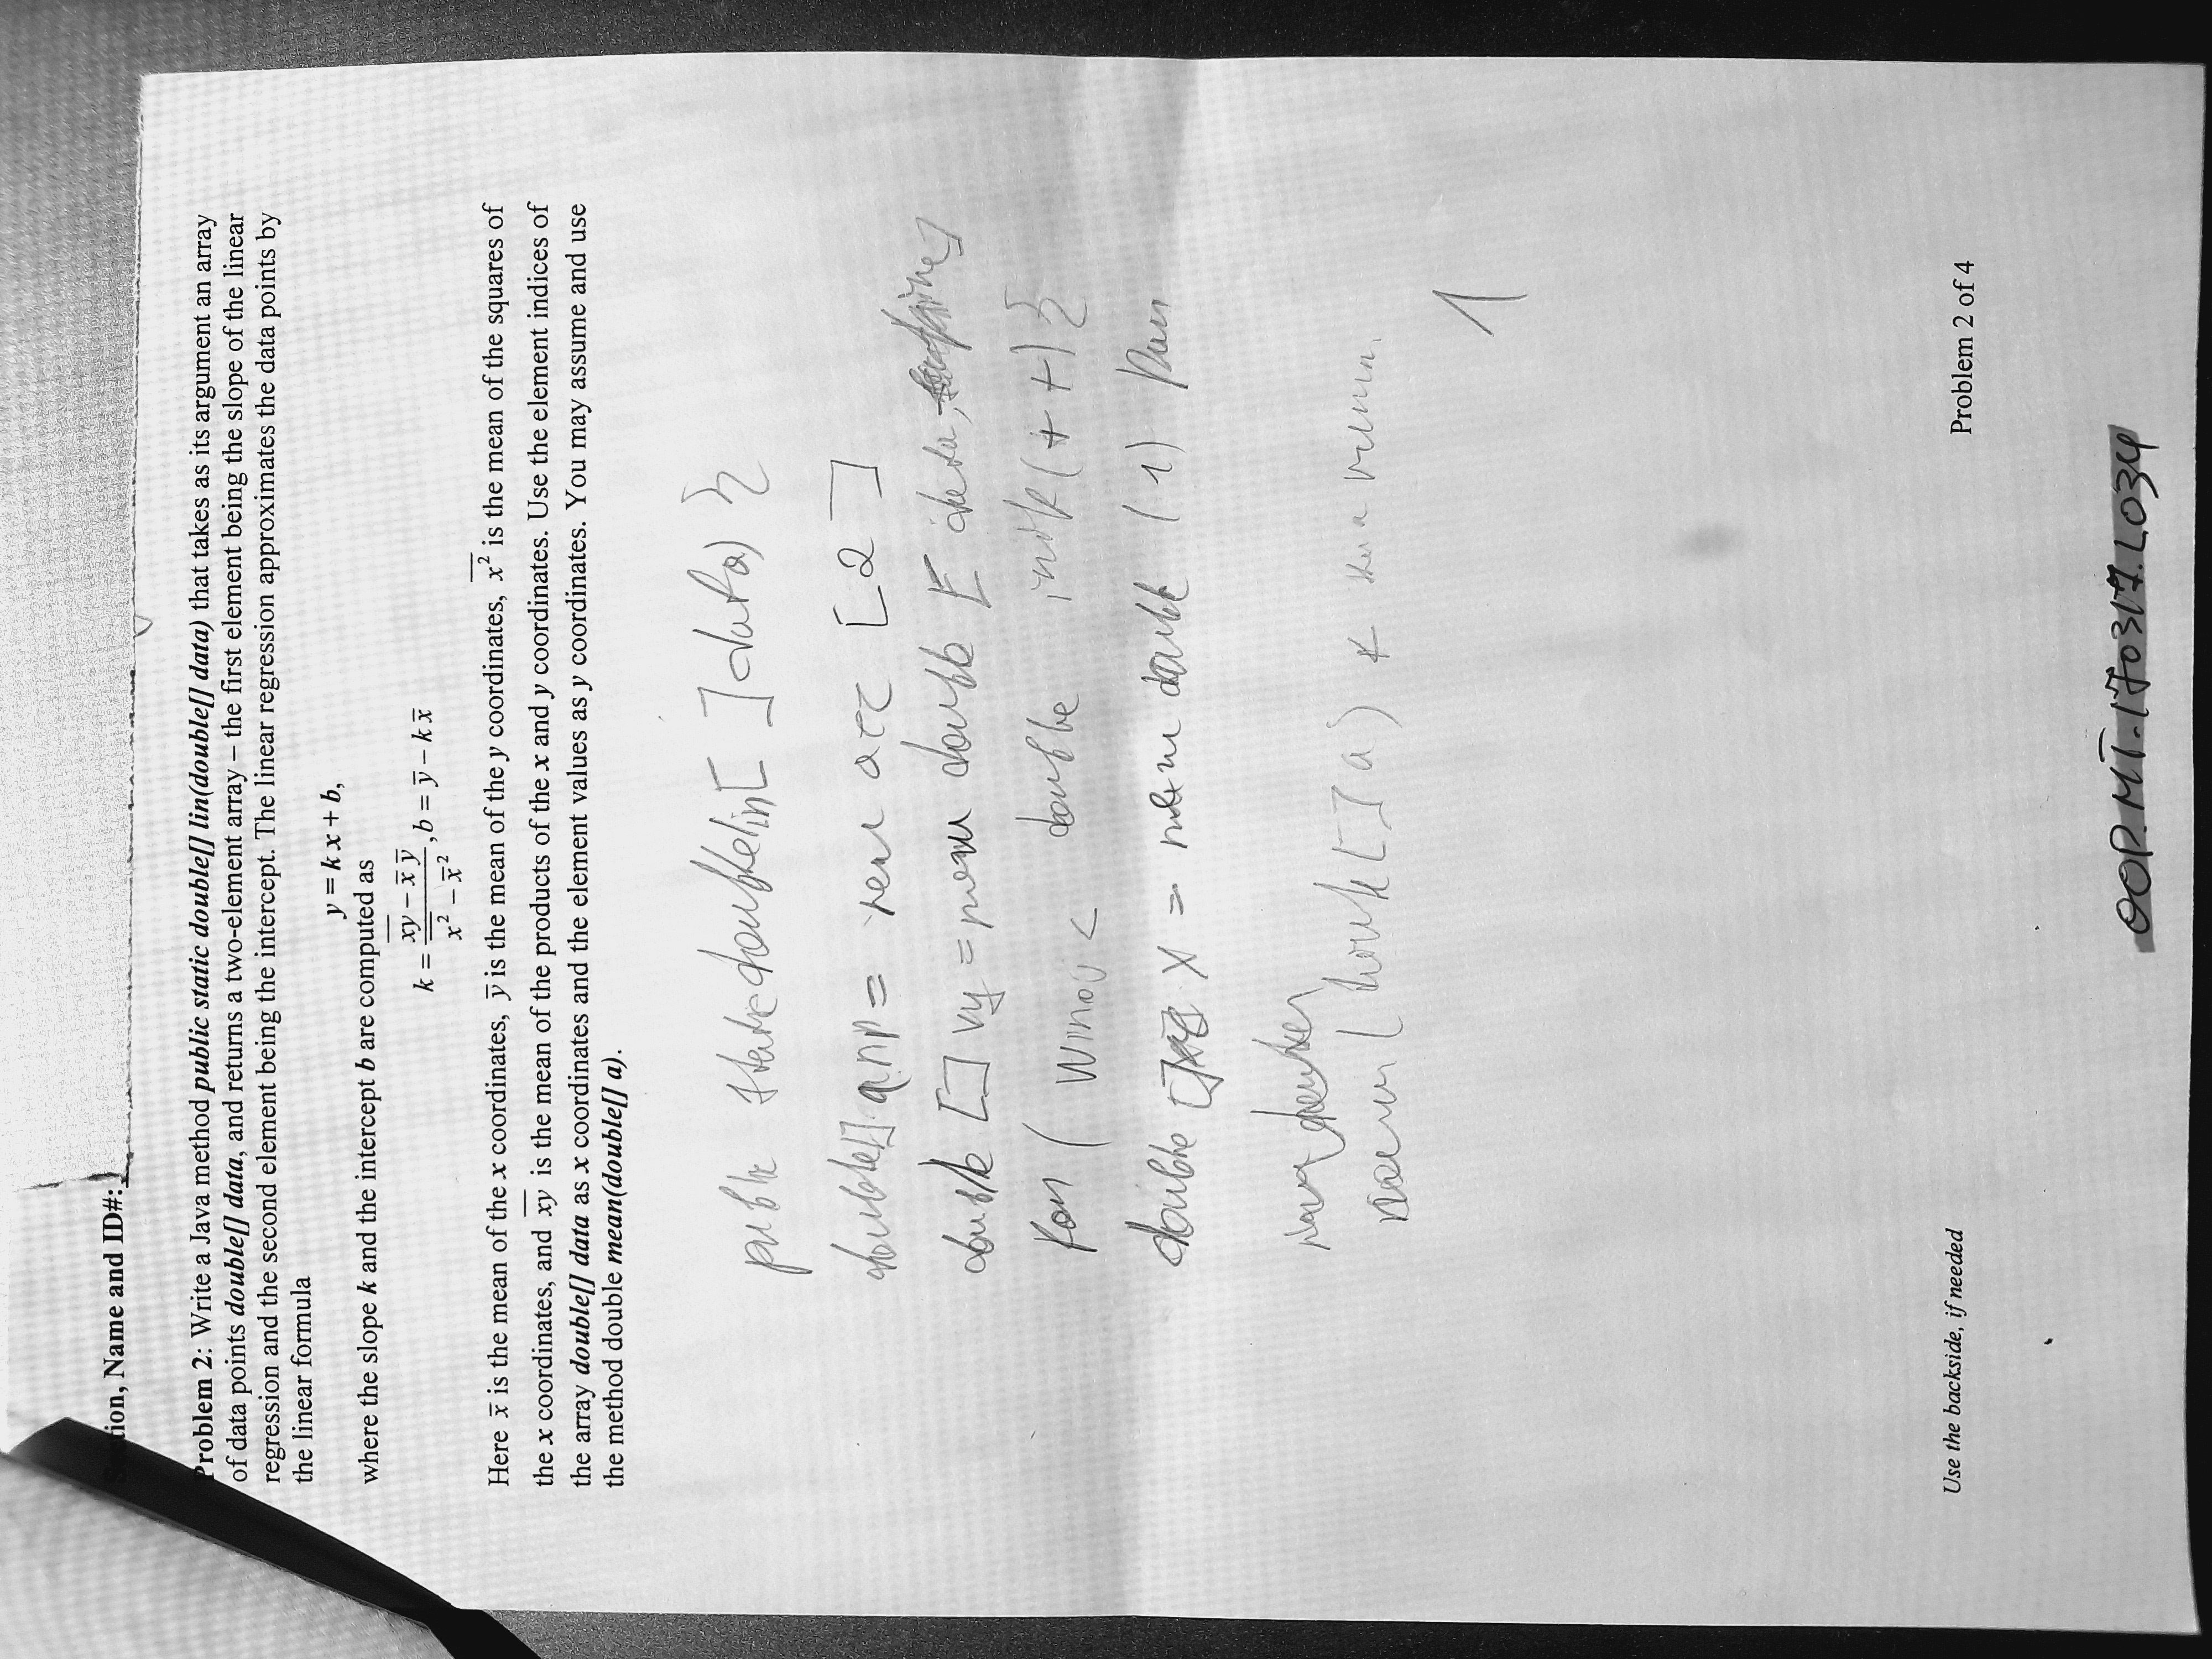 tion, Name and ID#:
Problem 2: Write a Java method public static double[] lin(double[] data) that takes as its argument an array
of data points double[] data, and returns a two-element array – the first element being the slope of the linear
regression and the second element being the intercept. The linear regression approximates the data points by
the linear formula
y = k x + b,
where the slope k and the intercept b are computed as
k = (x̅y̅ – x̄ ȳ) / (x̅²̅ – x̄²), b = ȳ – k x̄
Here x̄ is the mean of the x coordinates, ȳ is the mean of the y coordinates, x̅²̅ is the mean of the squares of
the x coordinates, and x̅y̅ is the mean of the products of the x and y coordinates. Use the element indices of
the array double[] data as x coordinates and the element values as y coordinates. You may assume and use
the method double mean(double[] a).
public static double lin[ ] data) {
double[] = [2]
double [] = double [ data,
( < double (++) {
double [] X = double (1)
( [] a)
1
Use the backside, if needed
Problem 2 of 4
OOP.MT.170317.L034